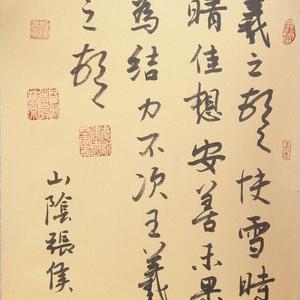 羲之頓首快雪時
晴佳想安善未果
為結力不次王羲
之頓首
山陰張侯